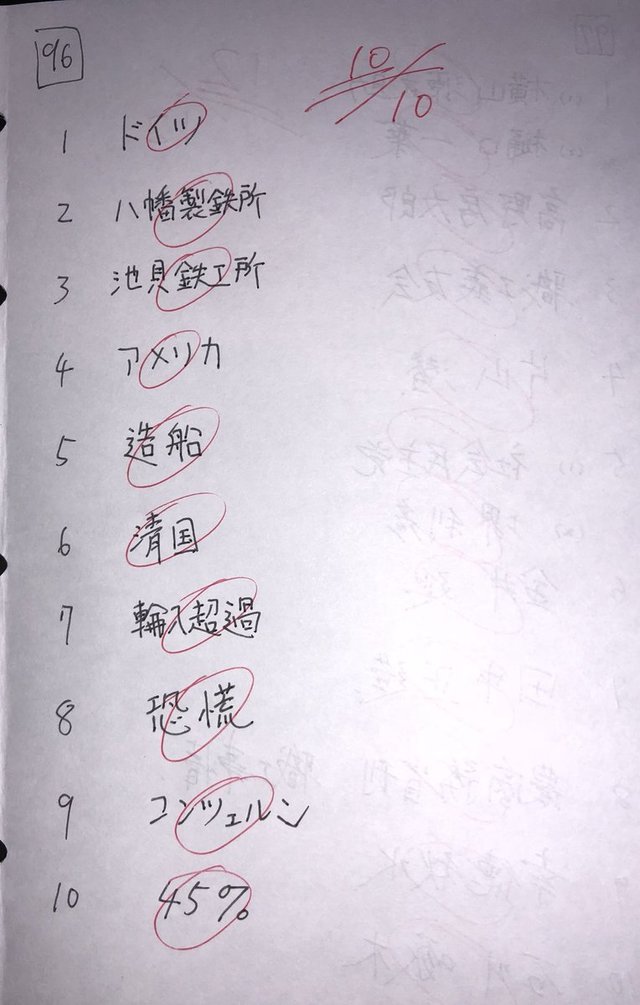 96
10/10
1 ドイツ
2 八幡製鉄所
3 池貝鉄工所
4 アメリカ
5 造船
6 清国
7 輪入超過
8 恐慌
9 コンツェルン
10 45%